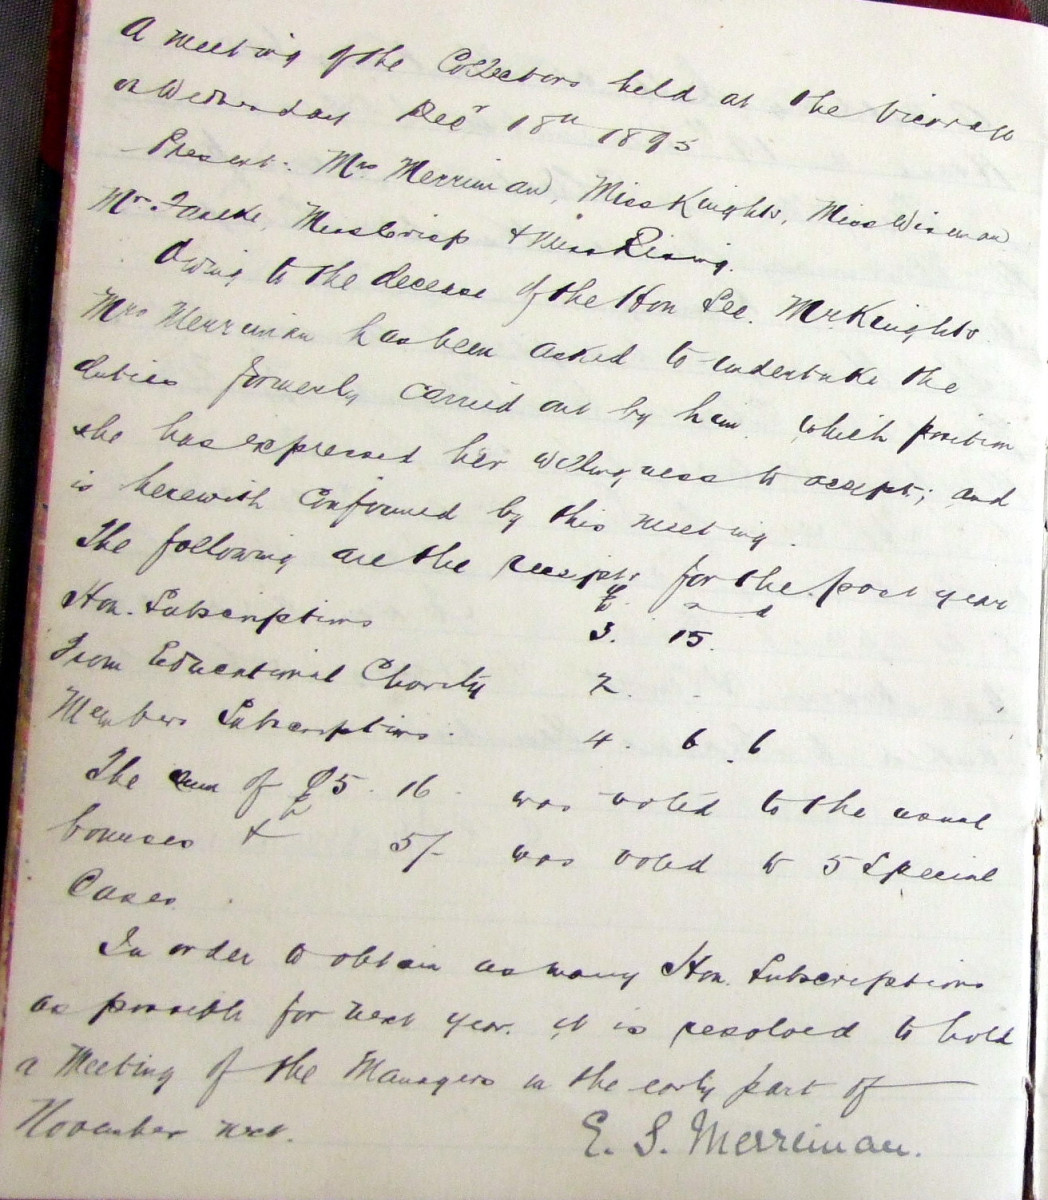 A meeting of the Collectors held at the Vicarage
on Wednesday Decr 18th 1895
Present: Mrs Merriman, Miss Knights, Miss Wiseman
Miss Crisp & Miss Rising.
Owing to the decease of the Hon Sec. Mr. Knights.
Mrs Merriman has been asked to undertake the
duties formerly carried out by him. which position
she has expressed her willingness to accept; and
is herewith confirmed by this meeting.
The following are the receipts for the past year
£ s d
Hon. Subscriptions 3. 15.
From Educational Charity 2. .
Members Subscriptions. 4. 6. 6
The sum of £5. 16. was voted to the usual
bonuses & 5/- was voted to 5 Special
Cases.
In order to obtain as many Hon. Subscriptions
as possible for next year. it is resolved to hold
a Meeting of the Managers in the early part of
November next.
E. S. Merriman.